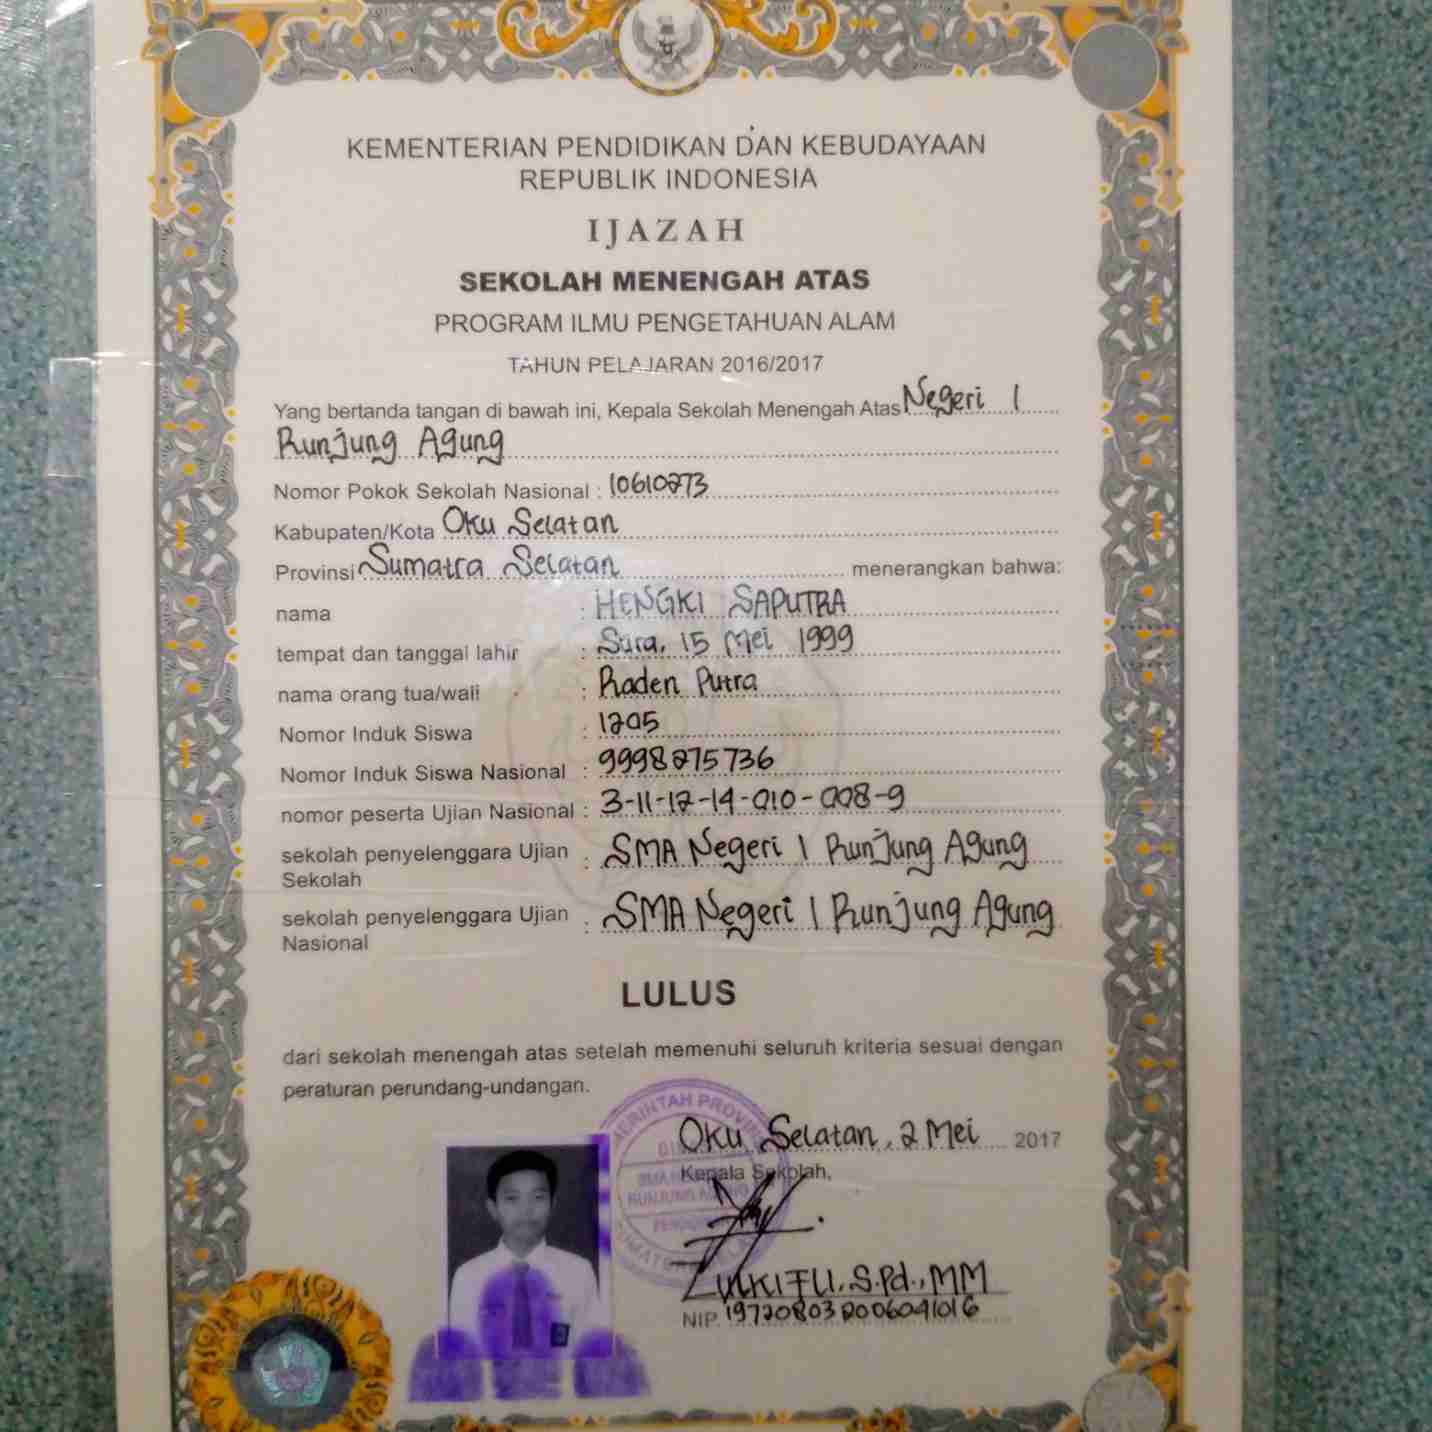 KEMENTERIAN PENDIDIKAN DAN KEBUDAYAAN
REPUBLIK INDONESIA
IJAZAH
SEKOLAH MENENGAH ATAS
PROGRAM ILMU PENGETAHUAN ALAM
TAHUN PELAJARAN 2016/2017
Yang bertanda tangan di bawah ini, Kepala Sekolah Menengah Atas Negeri 1
Runjung Agung
Nomor Pokok Sekolah Nasional : 10610273
Kabupaten/Kota Oku Selatan
Provinsi Sumatra Selatan menerangkan bahwa:
nama : HENGKI SAPUTRA
tempat dan tanggal lahir : Sura, 15 Mei 1999
nama orang tua/wali : Raden Putra
Nomor Induk Siswa : 1205
Nomor Induk Siswa Nasional : 9998275736
nomor peserta Ujian Nasional : 3-11-12-14-010-008-9
sekolah penyelenggara Ujian : SMA Negeri 1 Runjung Agung
Sekolah
sekolah penyelenggara Ujian : SMA Negeri 1 Runjung Agung
Nasional
LULUS
dari sekolah menengah atas setelah memenuhi seluruh kriteria sesuai dengan
peraturan perundang-undangan.
Oku Selatan, 2 Mei 2017
Kepala Sekolah,
RUNJUNG AGUNG
ZULKIFLI, S.Pd., MM
NIP. 197208032006041016